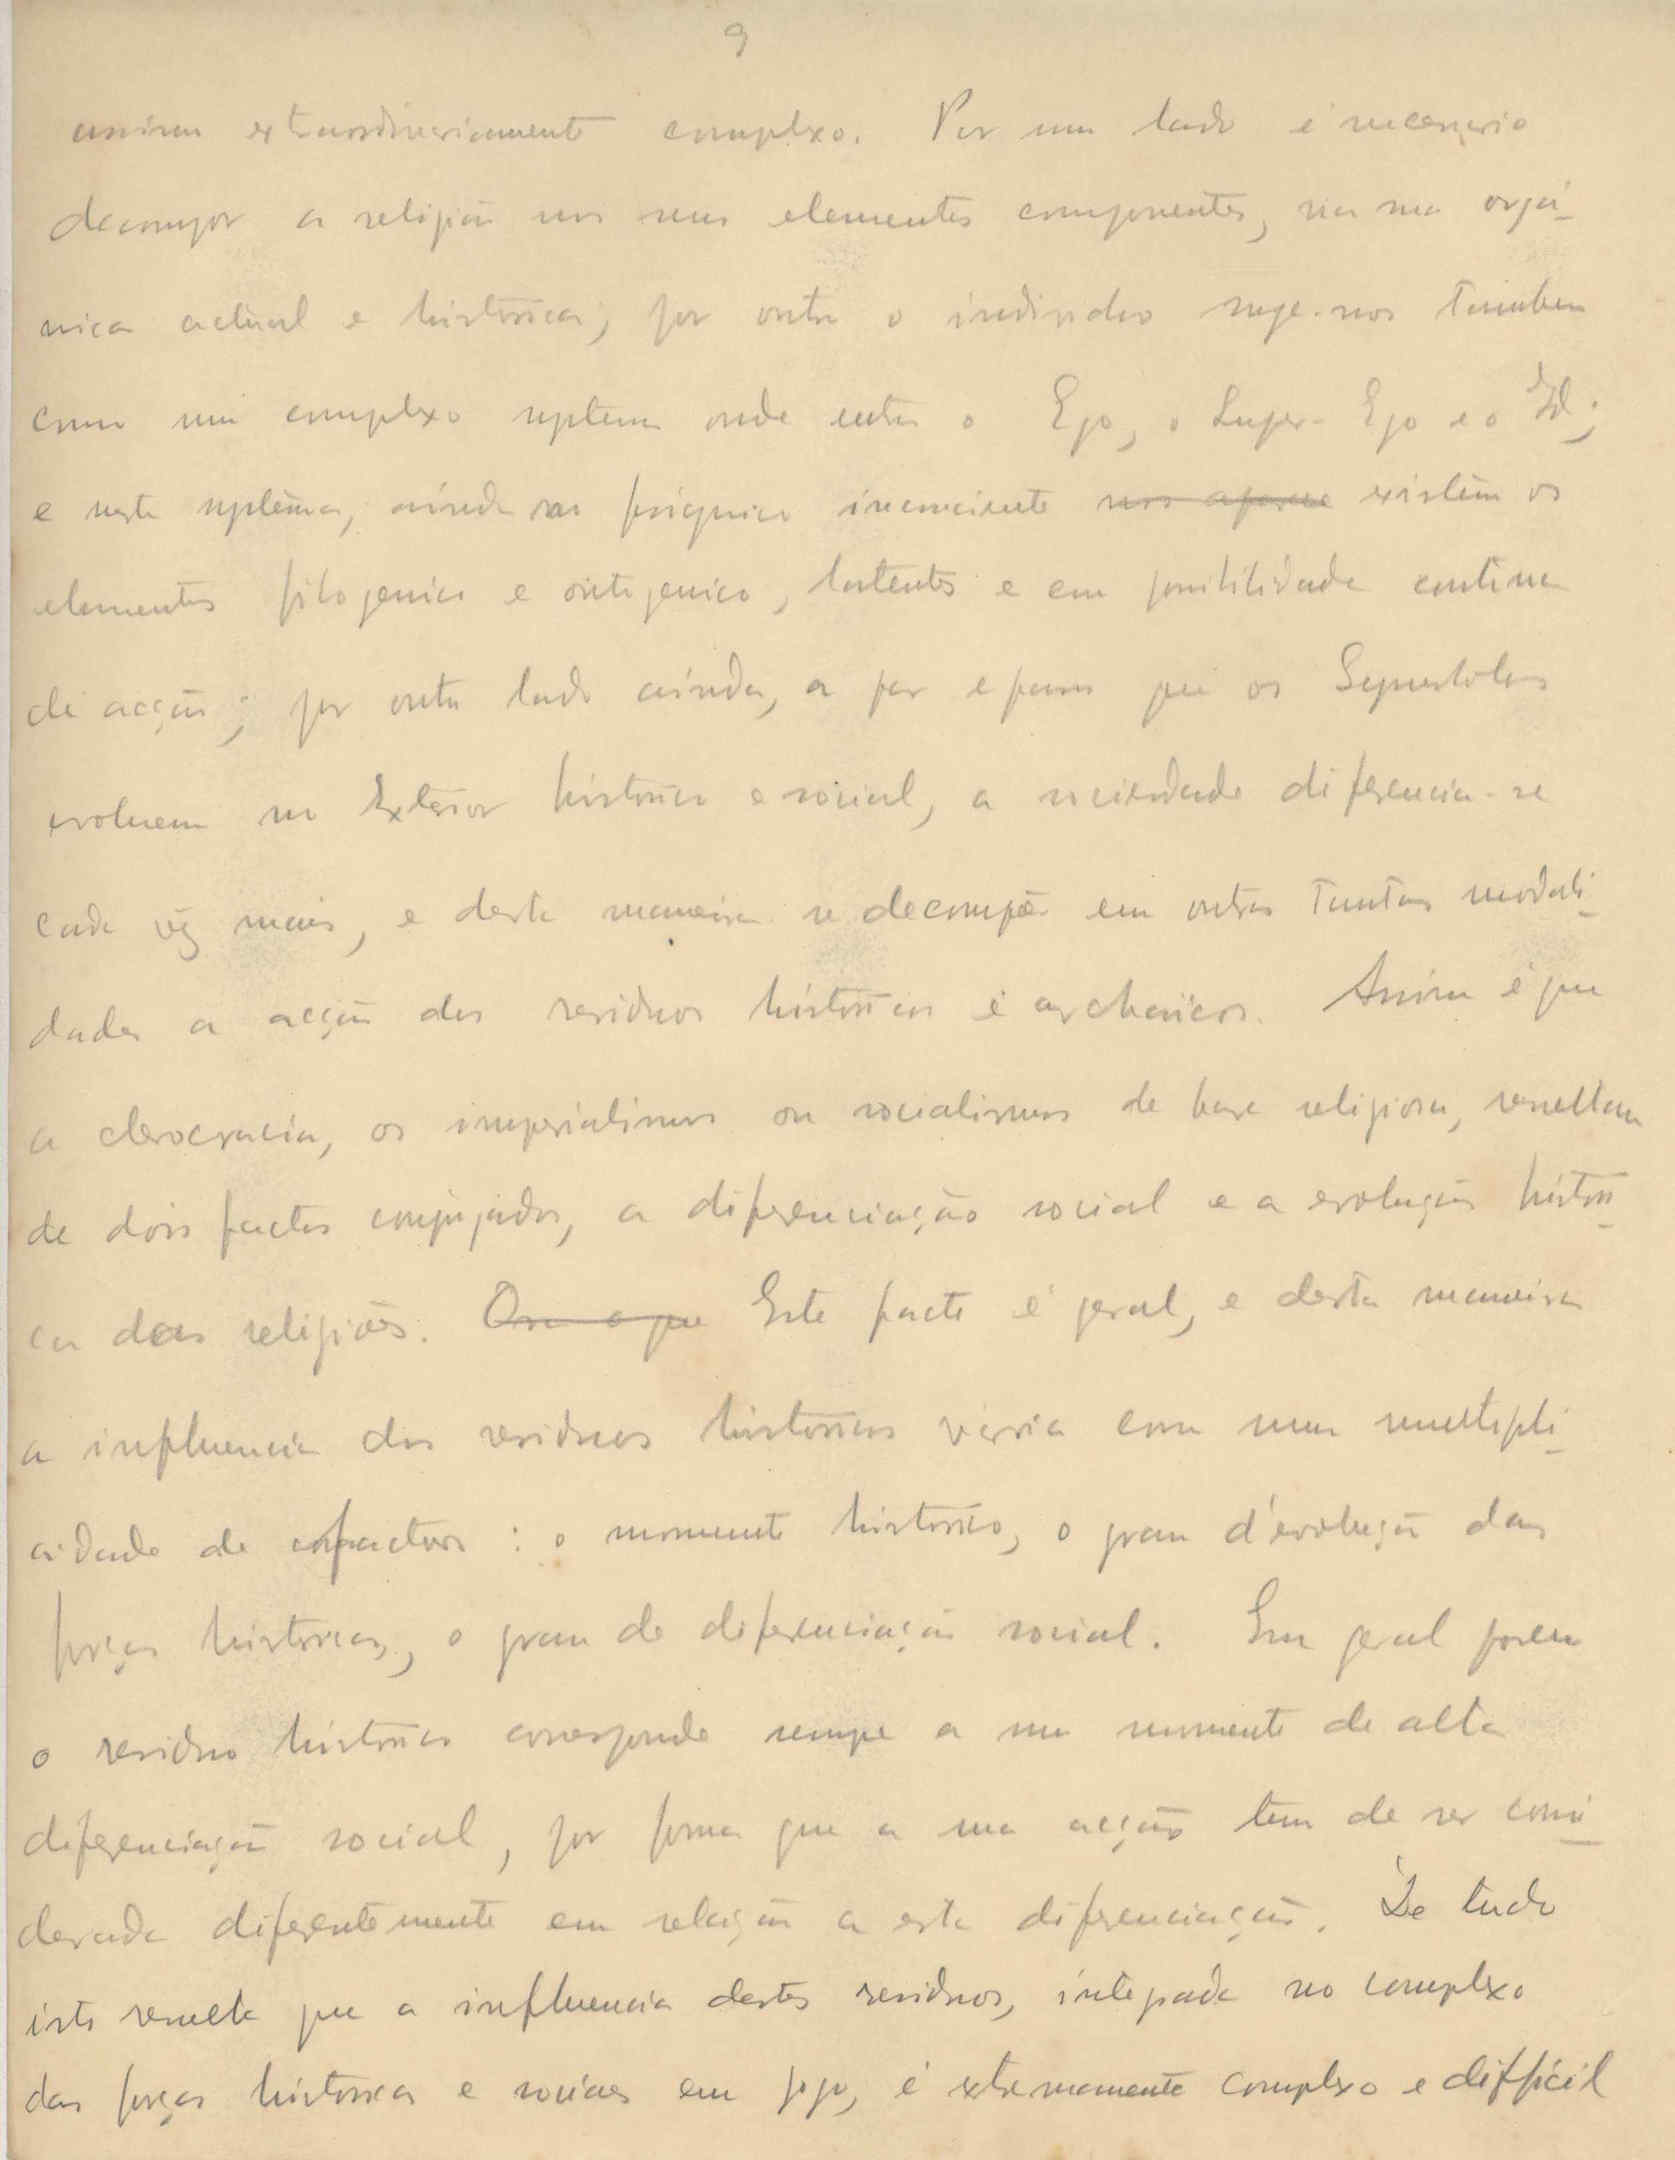 9
assim extraordinariamente complexo. Por um lado é necessario
decompor a religião nos seus elementos componentes, na sua orgâ-
nica actual e historica; por outro o individuo surge-nos tambem
como um complexo systema onde entra o Ego, o Super-Ego e o Id;
e neste systema, ainda no psiquico inconsciente nos aparece existem os
elementos filogenico e ontogenico, latentes e em possibilidade continua
de acção; por outro lado ainda, a par e passo que os
evoluem no Exterior historico e social, a sociedade diferencia-se
cada vez mais, e desta maneira se decompõe em outras tantas modali-
dades a acção dos residuos historicos e archaicos. Assim é que
a clerocracia, os imperialismos ou socialismos de base religiosa, resultam
de dois factos conjugados, a diferenciação social e a evolução histori-
ca das religiões. Ora o que Este facto é geral, e desta maneira
a influencia dos residuos historicos varia com uma multipli-
cidade de factores : o momento historico, o grau d'evolução das
forças historicas, o grau de diferenciação social. Em geral porem
o residuo historico corresponde sempre a um momento de alta
diferenciação social, por forma que a sua acção tem de ser consi-
derada diferentemente em relação a esta diferenciação. De tudo
isto resulta que a influencia destes residuos, integrada no complexo
das forças historicas e sociaes em jogo, é extremamente complexo e difficil